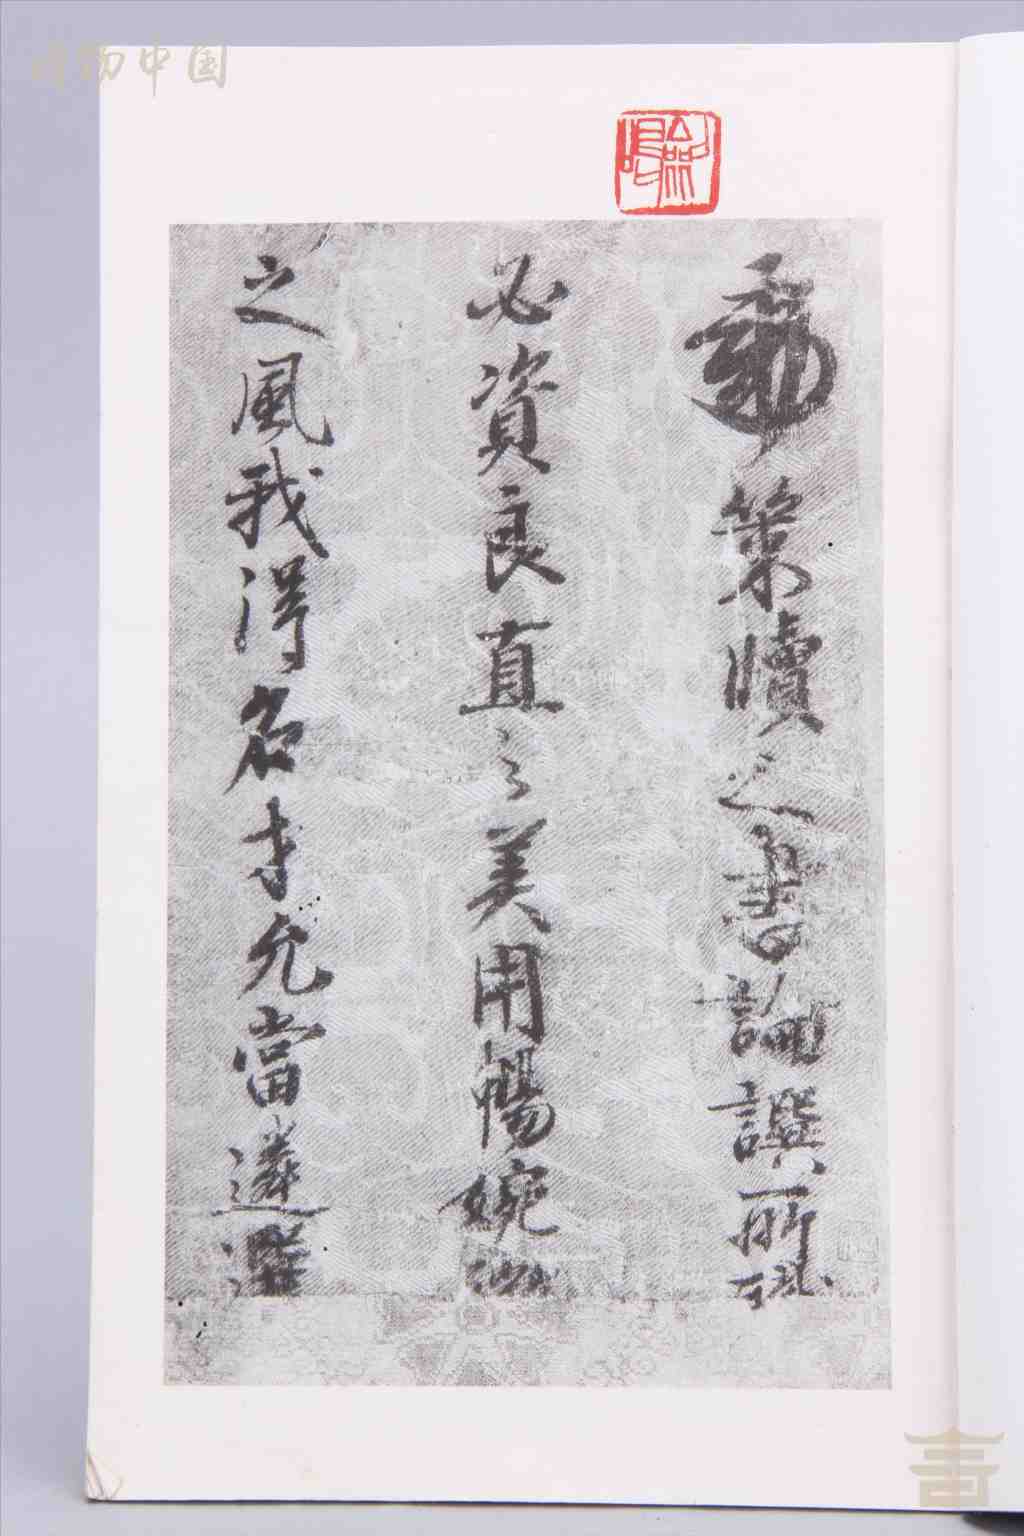 中国
勅策牘之書論譔所
必資良直之美用暢婉
之風我得名才允當遴選